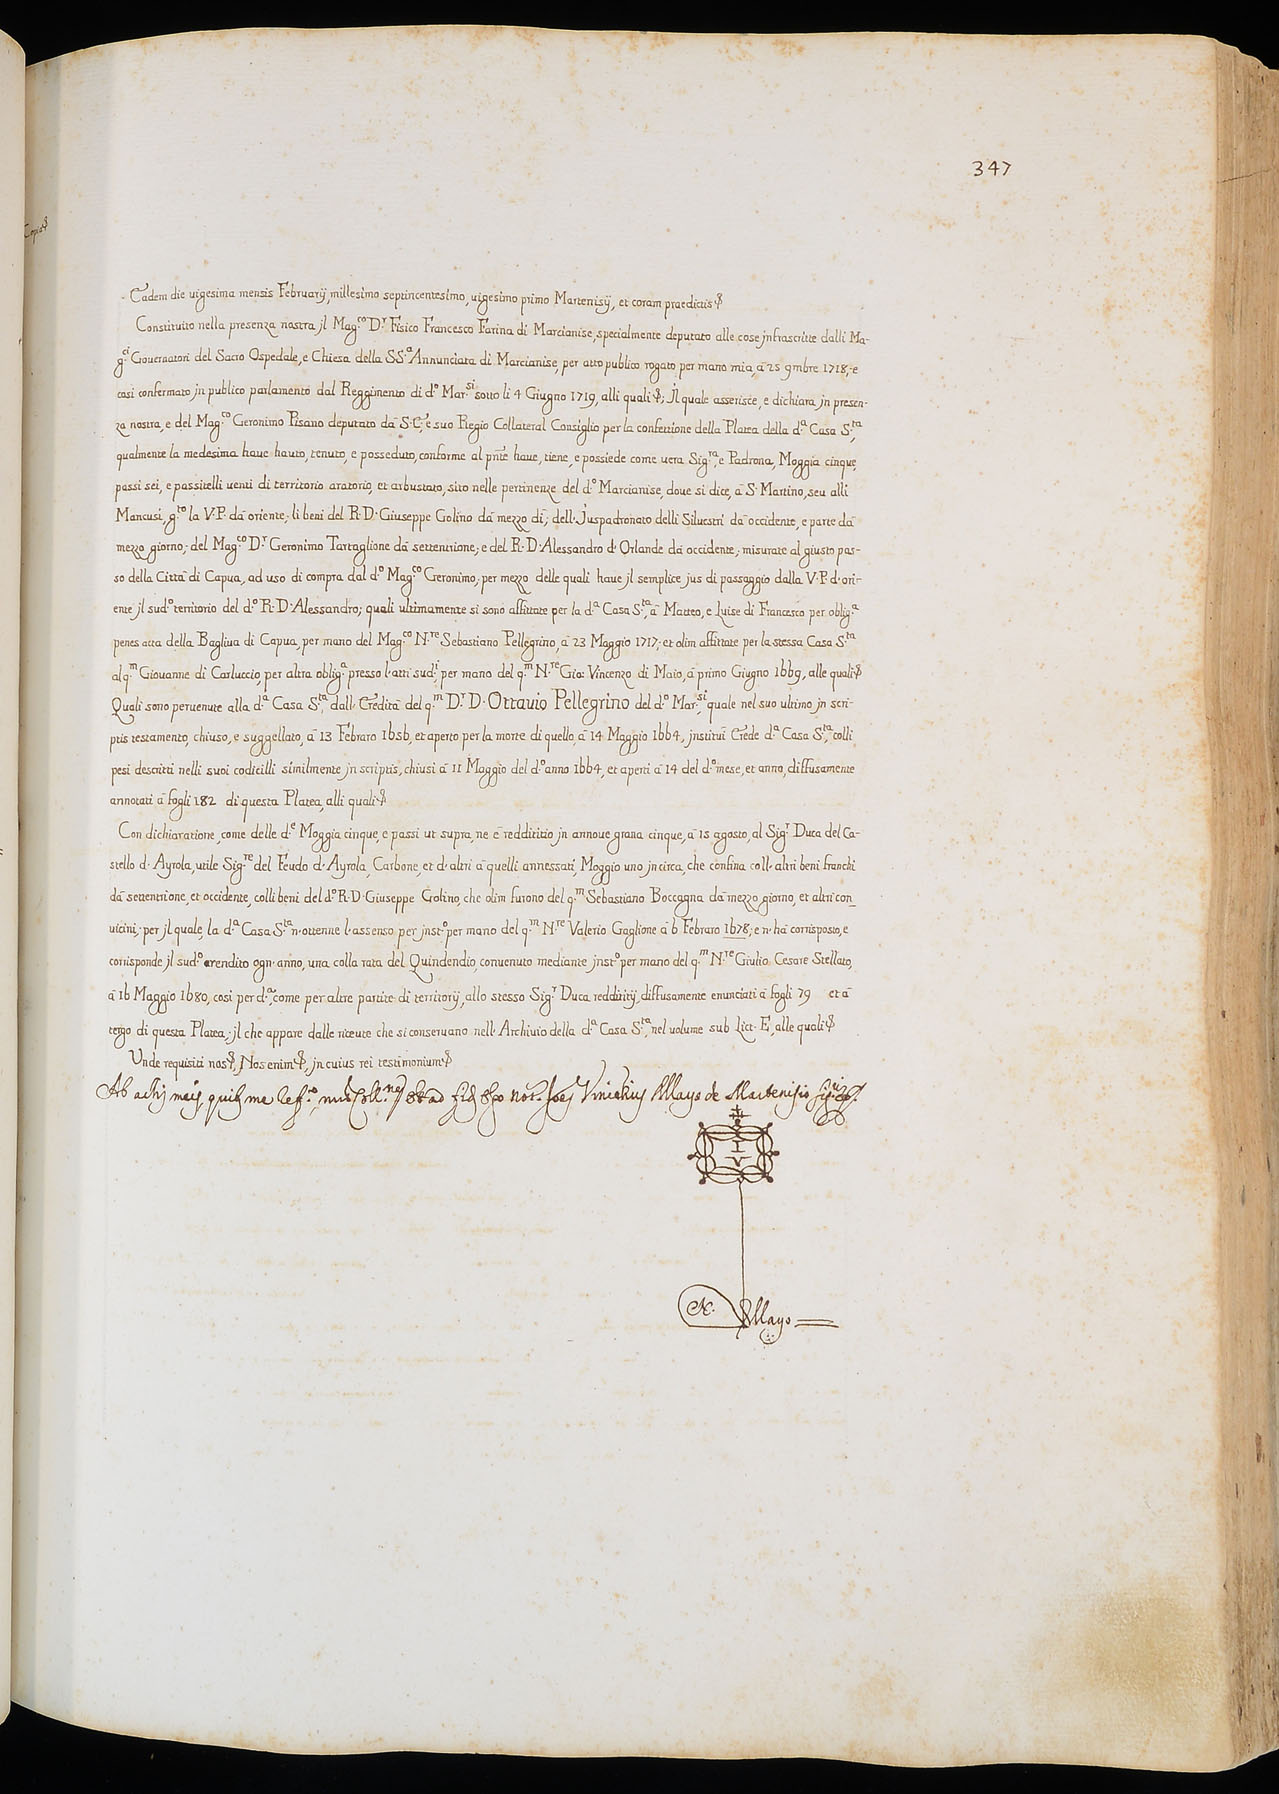 347
Copia
Eadem die uigesima mensis Februarij, millesimo septincentesimo, uigesimo primo Martenisij, et coram praedictis &
Constituito nella presenza nostra jl Mag.co D.r Fisico Francesco Farina di Marcianise, specialmente deputato alle cose jnfrascritte dalli Ma-
g.ci Gouernatori del Sacro Ospedale, e Chiesa della SS.a Annunciata di Marcianise, per atto publico rogato per mano mia, à 25 9mbre 1718, e
così confermato jn publico parlamento dal Reggimento di d.o Mar.si sotto li 4 Giugno 1719, alli quali &; Jl quale asserisce, e dichiara jn presen-
za nostra, e del Mag.co Geronimo Pisano deputato dà S. C. e suo Regio Collateral Consiglio per la confettione della Platea della d.a Casa S.ta,
qualmente la medesima haue hauto, tenuto, e posseduto, conforme al pnte haue, tiene, e possiede come uera Sig.ra, e Padrona, Moggia cinque,
passi sei, e passitelli uenti di territorio aratorio, et arbustato, sito nelle pertinenze del d.o Marcianise, doue si dice, à S. Martino, seu alli
Mancusi, g.to la V. P. dà oriente, li beni del R. D. Giuseppe Golino dà mezzo dì; dell. Juspadronato delli Siluestri dà occidente, e parte dà
mezzo giorno; del Mag.co D.r Geronimo Tartaglione dà settentrione; e del R. D. Alessandro d'Orlande dà occidente; misurate al giusto pas-
so della Città di Capua, ad uso di compra dal d.o Mag.co Geronimo, per mezzo delle quali haue jl semplice jus di passaggio dalla V. P. d'ori-
ente jl sud.o territorio del d.o R. D. Alessandro; quali ultimamente si sono affittate per la d.a Casa S.ta à Matteo, e Luise di Francesco per oblig.a
penes acta della Bagliua di Capua, per mano del Mag.co N.re Sebastiano Pellegrino, à 23 Maggio 1717; et olim affittate per la stessa Casa S.ta
al q.m Giouanne di Carluccio, per altra oblig.a presso l'atti sud.i, per mano del q.m N.re Gio: Vincenzo di Maio, à primo Giugno 1669, alle quali &
Quali sono peruenute alla d.a Casa S.ta, dall' Eredità del q.m D.r D. Ottauio Pellegrino del d.o Mar.si, quale nel suo ultimo jn scri-
ptis testamento, chiuso, e suggellato, à 13 Febraro 1656, et aperto per la morte di quello, à 14 Maggio 1664, jnstituì Erede d.a Casa S.ta, colli
pesi descritti nelli suoi codicilli similmente jn scriptis, chiusi à 11 Maggio del d.o anno 1664, et aperti à 14 del d.o mese, et anno, diffusamente
annotati à fogli 182 di questa Platea, alli quali &
Con dichiaratione, come delle d.e Moggia cinque, e passi ut supra, ne è reddititio jn annoue grana cinque, à 15 agosto, al Sig.r Duca del Ca-
stello d'Ayrola, utile Sig.re del Feudo d'Ayrola, Carbone, et d'altri à quelli annessati, Moggio uno jn circa, che confina coll'altri beni franchi
dà settentrione, et occidente, colli beni del d.o R. D. Giuseppe Golino, che olim furono del q.m Sebastiano Boccagna dà mezzo giorno, et altri con_
uicini; per jl quale, la d.a Casa S.ta n'ottenne l'assenso per jnst.o per mano del q.m N.re Valerio Gaglione à 6 Febraro 1678; e n'hà corrisposto, e
corrisponde jl sud.o arendito ogn'anno, una colla rata del Quindendio, conuenuto mediante jnst.o per mano del q.m N.re Giulio Cesare Stellato,
à 16 Maggio 1680, così per d.a, come per altre partite di territorij, allo stesso Sig.r Duca redditij, diffusamente enunciati à fogli 79 et à
tergo di questa Platea; jl che appare dalle riceute che si conseruano nell'Archiuio della d.a Casa S.ta, nel volume sub Litt. E, alle quali &
Unde requisiti nos &, Nos enim &, jn cuius rei testimonium &
Ab actis meis, not. Joes Vincetius Mayo de Martenisio
I
V
N. Mayo